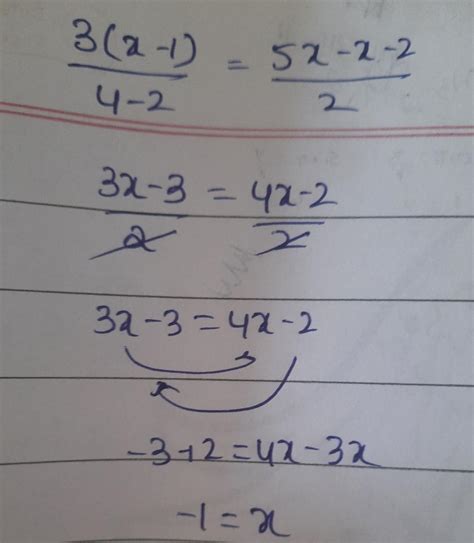 3(x-1)/4-2 = 5x-x-2/2
3x-3/2 = 4x-2/2
3x-3=4x-2
-3+2=4x-3x
-1=x